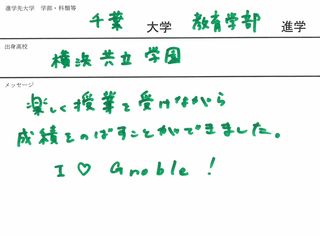 進学先大学 学部・科類等
千葉 大学 教育学部 進学
出身高校
横浜共立学園
メッセージ
楽しく授業を受けながら
成績をのばすことができました。
I ♡ Gnoble !